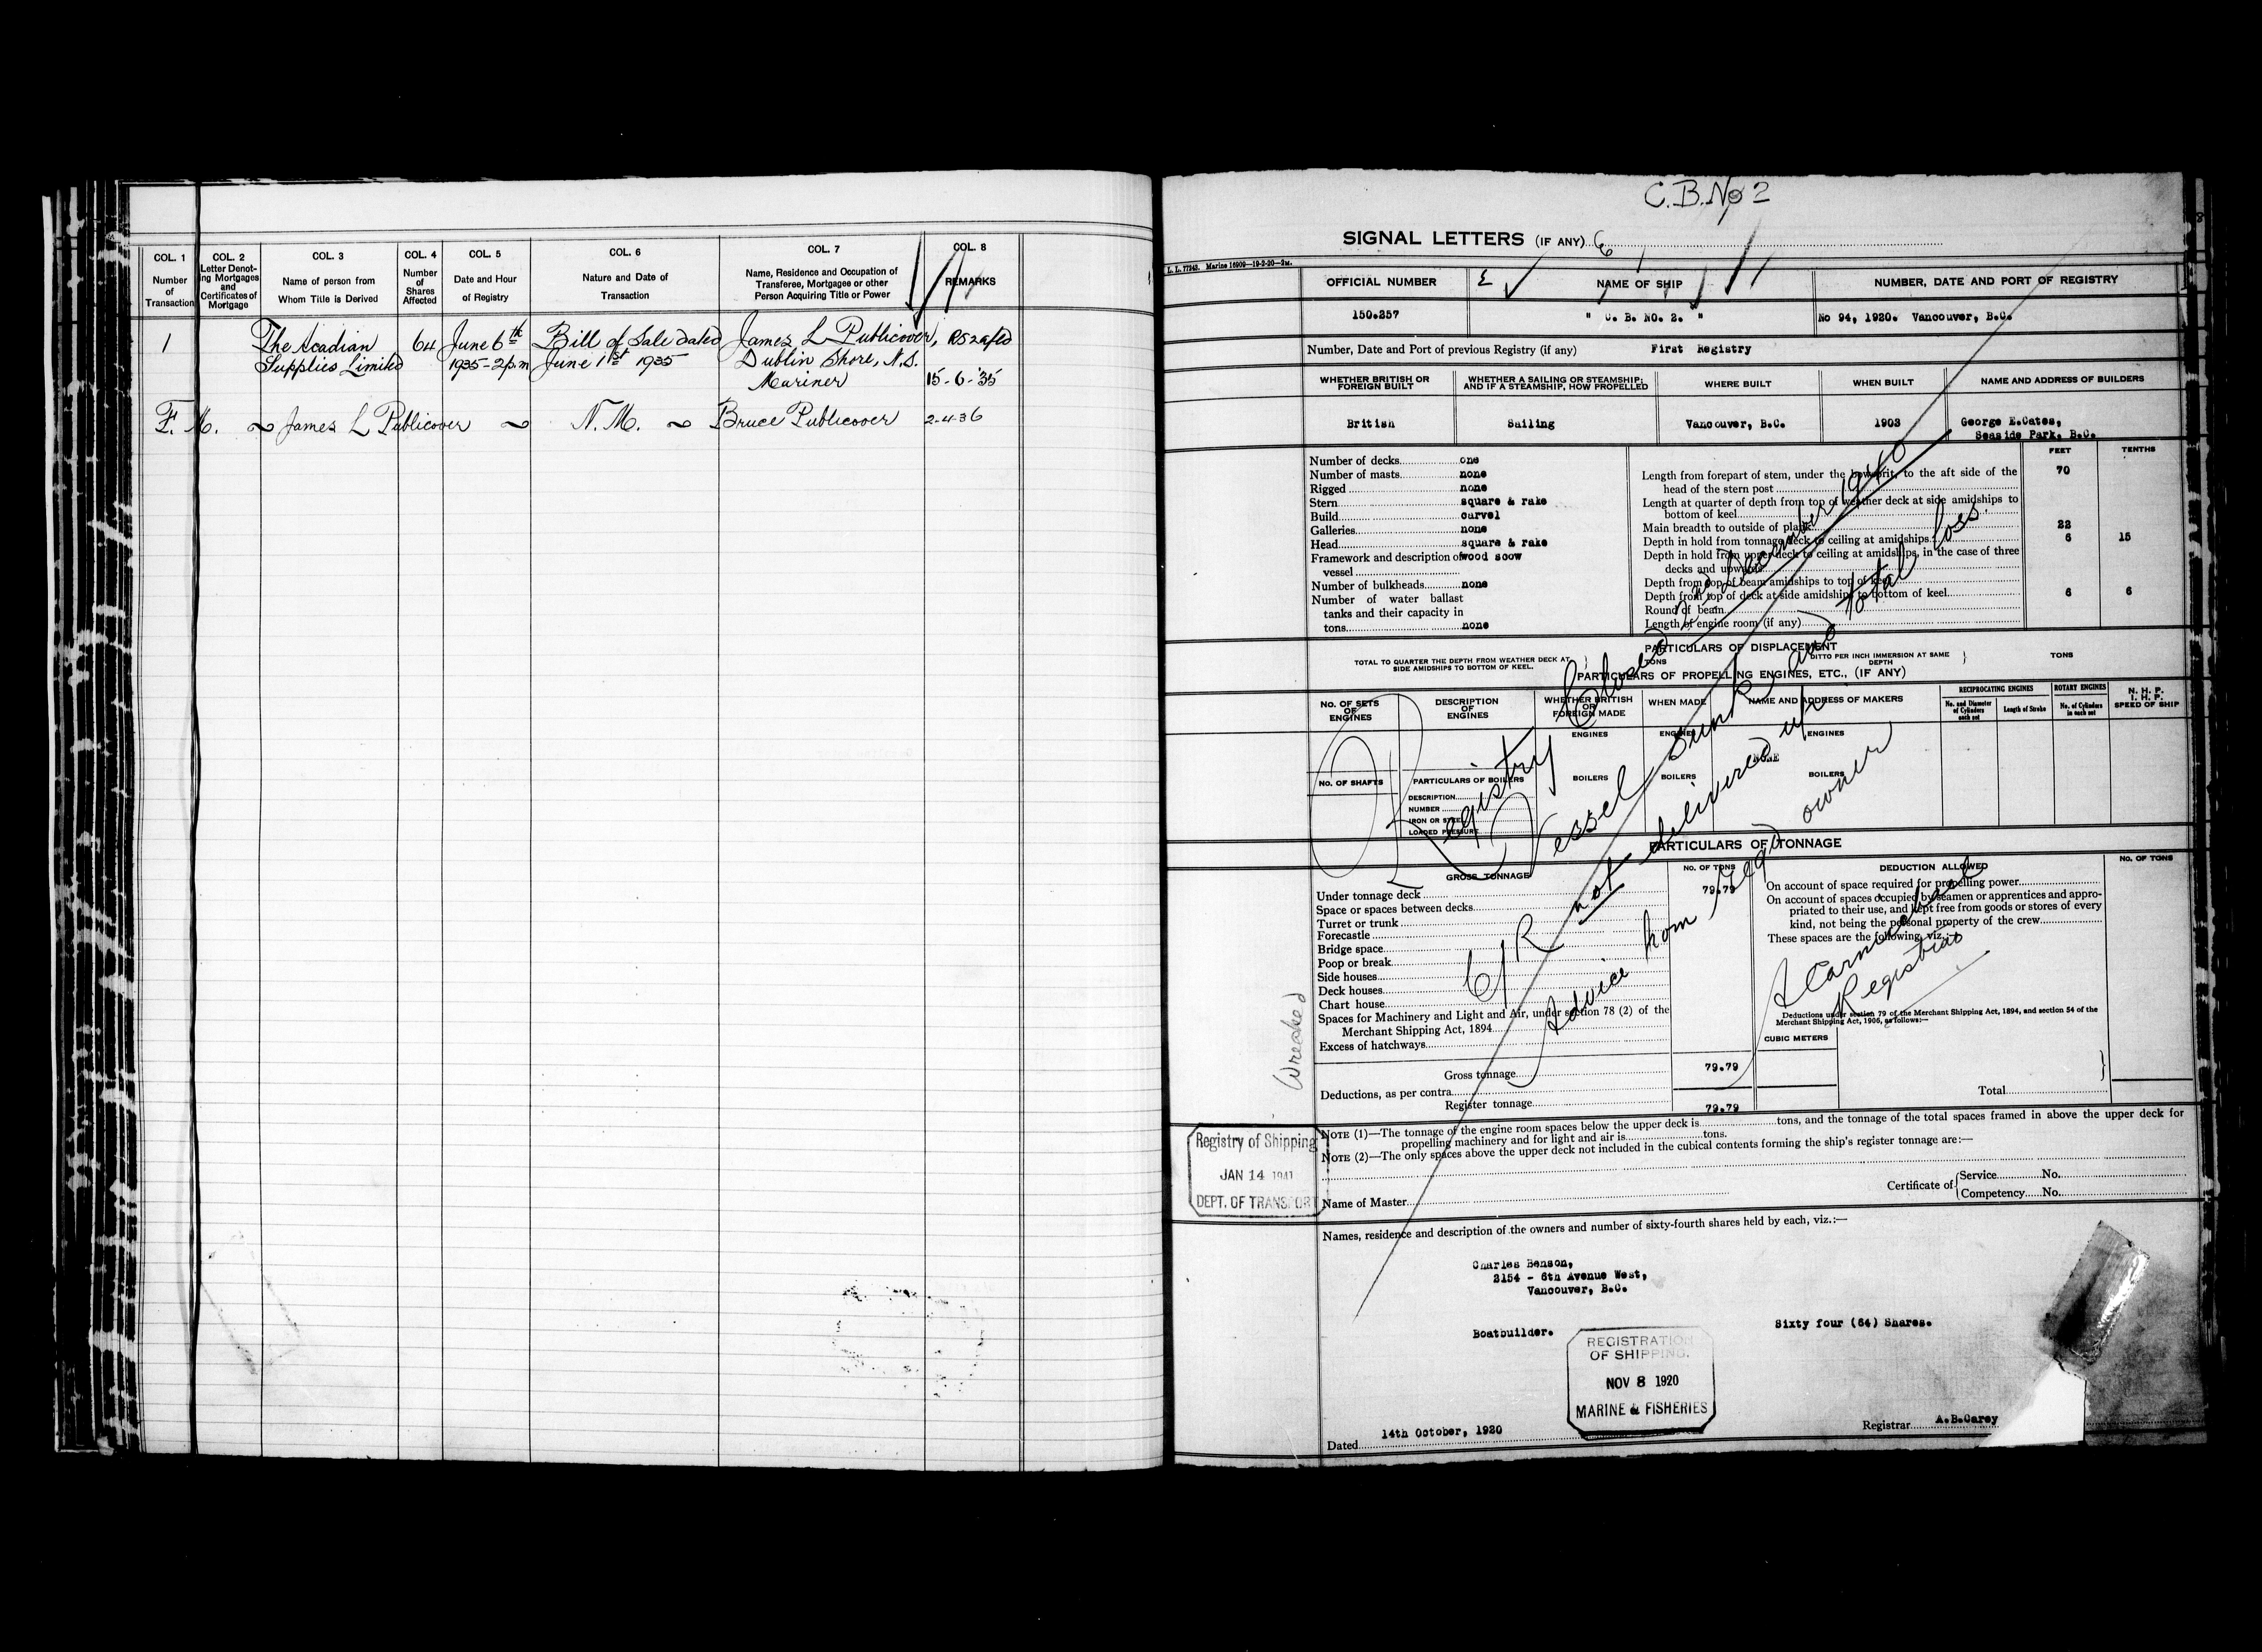 COL. 1
Number
of
Transaction
COL. 2
Letter Denot-
ing Mortgages
and
Certificates of
Mortgage
COL. 3
Name of person from
Whom Title is Derived
COL. 4
Number
of
Shares
Affected
COL. 5
Date and Hour
of Registry
COL. 6
Nature and Date of
Transaction
COL. 7
Name, Residence and Occupation of
Transferee, Mortgagee or other
Person Acquiring Title or Power
COL. 8
REMARKS
1 The Acadian 64 June 6th Bill of Sale dated James L Publicover,
Supplies Limited 1935-2p.m June 1st 1935 Dublin Shore, N.S.
Mariner 15-6-'35
F. M. ~ James L Publicover ~ N.M. ~ Bruce Publicover 2-4-36
C.B. No 2
SIGNAL LETTERS (IF ANY)
L. L. 77243. Marine 16909—19-2-20—2M.
OFFICIAL NUMBER
NAME OF SHIP
NUMBER, DATE AND PORT OF REGISTRY
150.257
" C. B. NO. 2. "
No 94, 1920. Vancouver, B.C.
Number, Date and Port of previous Registry (if any) First Registry
WHETHER BRITISH OR
FOREIGN BUILT
WHETHER A SAILING OR STEAMSHIP;
AND IF A STEAMSHIP, HOW PROPELLED
WHERE BUILT
WHEN BUILT
NAME AND ADDRESS OF BUILDERS
British
Sailing
Vancouver, B.C.
1903
George E.Cates,
Seaside Park, B.C.
Number of decks one
Number of masts none
Rigged none
Stern square & rake
Build carvel
Galleries none
Head square & rake
Framework and description of wood scow
vessel
Number of bulkheads none
Number of water ballast
tanks and their capacity in
tons none
FEET TENTHS
Length from forepart of stem, under the bowsprit, to the aft side of the 70
head of the stern post
Length at quarter of depth from top of weather deck at side amidships to
bottom of keel
Main breadth to outside of plank 22
Depth in hold from tonnage deck to ceiling at amidships 6 15
Depth in hold from upper deck to ceiling at amidships, in the case of three
decks and upwards
Depth from top of beam amidships to top of keel
Depth from top of deck at side amidships to bottom of keel 6 6
Round of beam
Length of engine room (if any)
PARTICULARS OF DISPLACEMENT
TOTAL TO QUARTER THE DEPTH FROM WEATHER DECK AT
SIDE AMIDSHIPS TO BOTTOM OF KEEL.
TONS
DITTO PER INCH IMMERSION AT SAME
DEPTH
TONS
PARTICULARS OF PROPELLING ENGINES, ETC., (IF ANY)
NO. OF SETS
OF
ENGINES
DESCRIPTION
OF
ENGINES
WHETHER BRITISH
OR
FOREIGN MADE
WHEN MADE
NAME AND ADDRESS OF MAKERS
RECIPROCATING ENGINES
No. and Diameter
of Cylinders
each set
Length of Stroke
ROTARY ENGINES
No. of Cylinders
in each set
N. H. P.
I. H. P.
SPEED OF SHIP
ENGINES
ENGINES
ENGINES
NONE
NO. OF SHAFTS
PARTICULARS OF BOILERS
BOILERS
BOILERS
BOILERS
DESCRIPTION
NUMBER
IRON OR STEEL
LOADED PRESSURE
Registry Closed December 1940
Vessel sunk and total loss.
C/R not delivered up
Advice from owner
Carmichael
Registrar
PARTICULARS OF TONNAGE
GROSS TONNAGE
NO. OF TONS
DEDUCTION ALLOWED
NO. OF TONS
Under tonnage deck 79.79
Space or spaces between decks
Turret or trunk
Forecastle
Bridge space
Poop or break
Side houses
Deck houses
Chart house
Spaces for Machinery and Light and Air, under section 78 (2) of the
Merchant Shipping Act, 1894
Excess of hatchways
Gross tonnage 79.79
Deductions, as per contra
Register tonnage 79.79
On account of space required for propelling power
On account of spaces occupied by seamen or apprentices and appro-
priated to their use, and kept free from goods or stores of every
kind, not being the personal property of the crew
These spaces are the following, viz.
Deductions under section 79 of the Merchant Shipping Act, 1894, and section 54 of the
Merchant Shipping Act, 1906, as follows:—
CUBIC METERS
Total
Wrecked
Registry of Shipping
JAN 14 1941
DEPT. OF TRANSPORT
NOTE (1)—The tonnage of the engine room spaces below the upper deck is tons, and the tonnage of the total spaces framed in above the upper deck for
propelling machinery and for light and air is tons.
NOTE (2)—The only spaces above the upper deck not included in the cubical contents forming the ship's register tonnage are:—
Name of Master
Certificate of
Service No.
Competency No.
Names, residence and description of the owners and number of sixty-fourth shares held by each, viz.:—
Charles Benson,
2154 - 6th Avenue West,
Vancouver, B.C.
Boatbuilder.
Sixty four (64) Shares.
REGISTRATION
OF SHIPPING.
NOV 8 1920
MARINE & FISHERIES
Dated 14th October, 1920
Registrar A.B.Carey